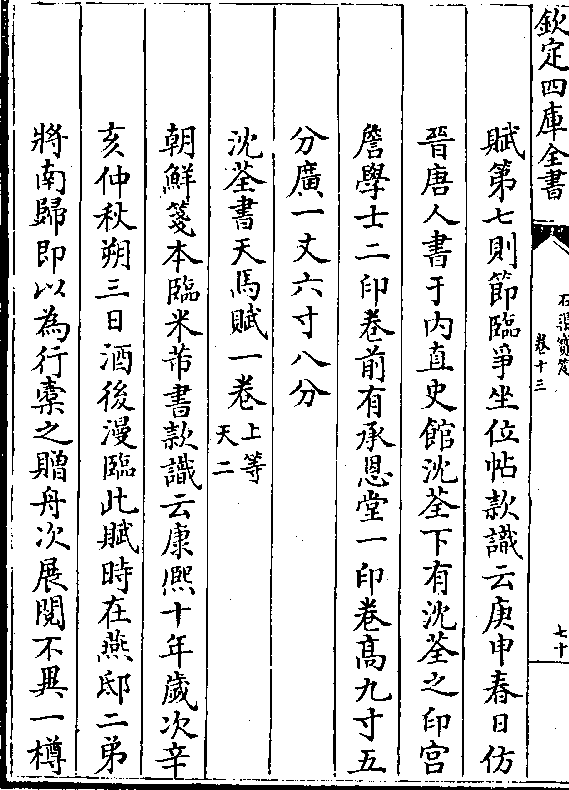 欽定四庫全書
石渠寳笈
卷十三
七十
賦第七則節臨爭坐位帖款識云庚申春日仿
晉唐人書于内直史館沈荃下有沈荃之印宫
詹學士二印卷前有承恩堂一印卷髙九寸五
分廣一丈六寸八分
沈荃書天馬賦一卷上等天二
朝鮮箋本臨米芾書款識云康熙十年歲次辛
亥仲秋朔三日酒後漫臨此賦時在燕邸二弟
將南歸即以為行橐之贈舟次展閲不異一樽